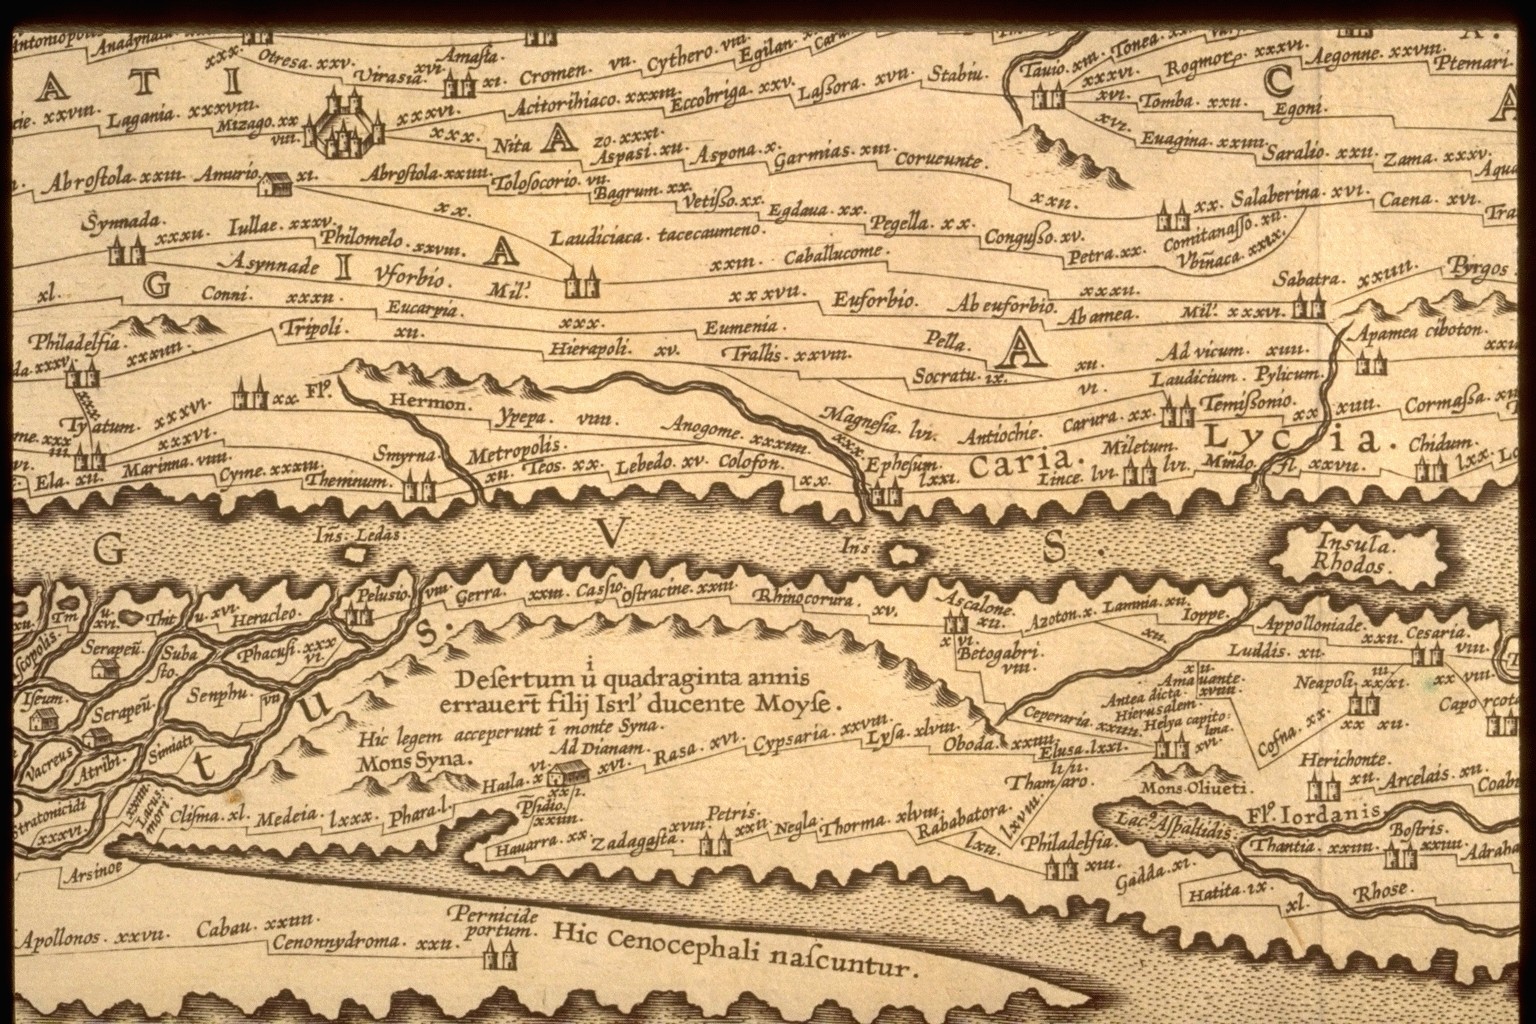 Antoniopolis
Anadynata
xxx. Otresa. xxv.
Virasia. xvi.
Amasia.
xi. Cromen. vii. Cythero. viii. Egilan.
Stabiu.
Tavio. xiii. Tonea.
xxxvi. Rogmor. xxxvi. Aegonne. xxviii. Ptemari.
A T I
C
A
xxviii. Lagania. xxxviii.
Mizago. xx
viii.
xxxvi. Acitorihiaco. xxxiii. Eccobriga. xxv. Lassora. xvii.
xvi. Tomba. xxii. Egoni.
xxx. Nita A zo. xxxi.
Aspasi. xii. Aspona. x. Garmias. xiii. Corueunte.
xvi. Euagina. xxiiii. Saralio. xxii. Zama. xxxv. Aqua
Abrostola. xxiii. Amurio. xi. Abrostola. xxiiii. Tolosocorio. vii.
Bagrum. xx. Vetisso. xx. Egdaua. xx. Pegella. xx. Congusso. xv. Petra. xx.
xxii. xx. Salaberina. xvi. Caena. xvi. Tra
Comitanasso. xii.
Ubinaca. xxix.
Synnada. xxxii. Iullae. xxxv. Philomelo. xxviii.
xx.
Laudiciaca. tacecaumeno.
Asynnade I Vforbio. A Mil'.
xxiii. Caballucome.
Sabatra. xxiiii. Pyrgos
xl. G Conni. xxxii. Eucarpia. xxx.
xxxvii. Euforbio. Ab euforbio. xxxii.
Abamea. Mil'. xxxvi.
Apamea ciboton.
Philadelfia. xxxiiii. Tripoli. xii. Hierapoli. xv.
Eumenia. Trallis. xxviii. Pella. A Socratu. ix.
xii. Ad vicum. xiii.
vi. Laudicium. Pylicum.
Temissonio. xx xiiii. Cormassa.
xx. Fl9.
Hermon. Ypepa. viiii. Anogome. xxxiiii. Magnesia. lvi. Antiochie. Carura. xx.
xxx. Tyatum. xxxvi.
xxxvi.
Lycia.
Metropolis. xii. Teos. xx. Lebedo. xv. Colofon. xx. Ephesum. lxxi.
Caria. Miletum.
Lince. lvi. lvi. Mindo. fl. xxvii. Chidum. lxx.
Ela. xii. Marinna. viiii. Cyme. xxxiii. Themnum. Smyrna.
G V S.
Ins. Ledas.
Ins.
Insula.
Rhodos.
Thit u. xvi. Heracleo. Pelusio. viii. Gerra. xxiii. Cassio. Ostracine. xxiii. Rhinocorura. xv. Ascalone. xii. Azoton. x. Lamnia. xii. Ioppe. Appolloniade. xxii. Cesaria. viii.
xvi. Betogabri. viii.
xii. Luddis. xii.
Serapeū. Suba sto. Phacusi. xxx vi.
Iseum. Serapeū. Senphu. vii
Vacreus Atribi. Simiati
Stratonicidi xxxvi.
t u s.
Desertum ŭ quadraginta annis
errauert filij Isrl' ducente Moyse.
Hic legem acceperunt ī monte Syna.
Mons Syna. Ad Dianam.
Haila. x vi. xvi. Rasa. xvi. Cypsaria. xxviii. Lysa. xlviii. Oboda. xxiiii. Elusa. lxxi.
Ceperaria. xxiiii.
Amauante xviii.
Antea dicta.
Hierusalem.
Helya capitolina. xvi.
Neapoli. Cofna. xx. xx xii.
xx viii.
Capo rcota
Mons Oliueti.
Herichonte. xii. Arcelais. xii. Coabi
Lacus mori.
Clisma. xl. Medeia. lxxx. Phara. l.
Psidio. xxiiii.
Hauarra. xx. Zadagasta. xviii. Petris. xxii. Negla. Thorma. xlviii. Rababatora. lxii.
Thamaro. lxviii.
Philadelfia. xiii. Gadda. xi.
Lac9. Aspaltidis. Fl9. Iordanis
Thantia. xxiiii. Bostris. xxiiii. Adraha
Hatita. ix. xl. Rhose.
Arsinoe
Apollonos. xxvii. Cabau. xxiiii. Cenonnydroma. xxii.
Pernicide portum.
Hic Cenocephali nascuntur.